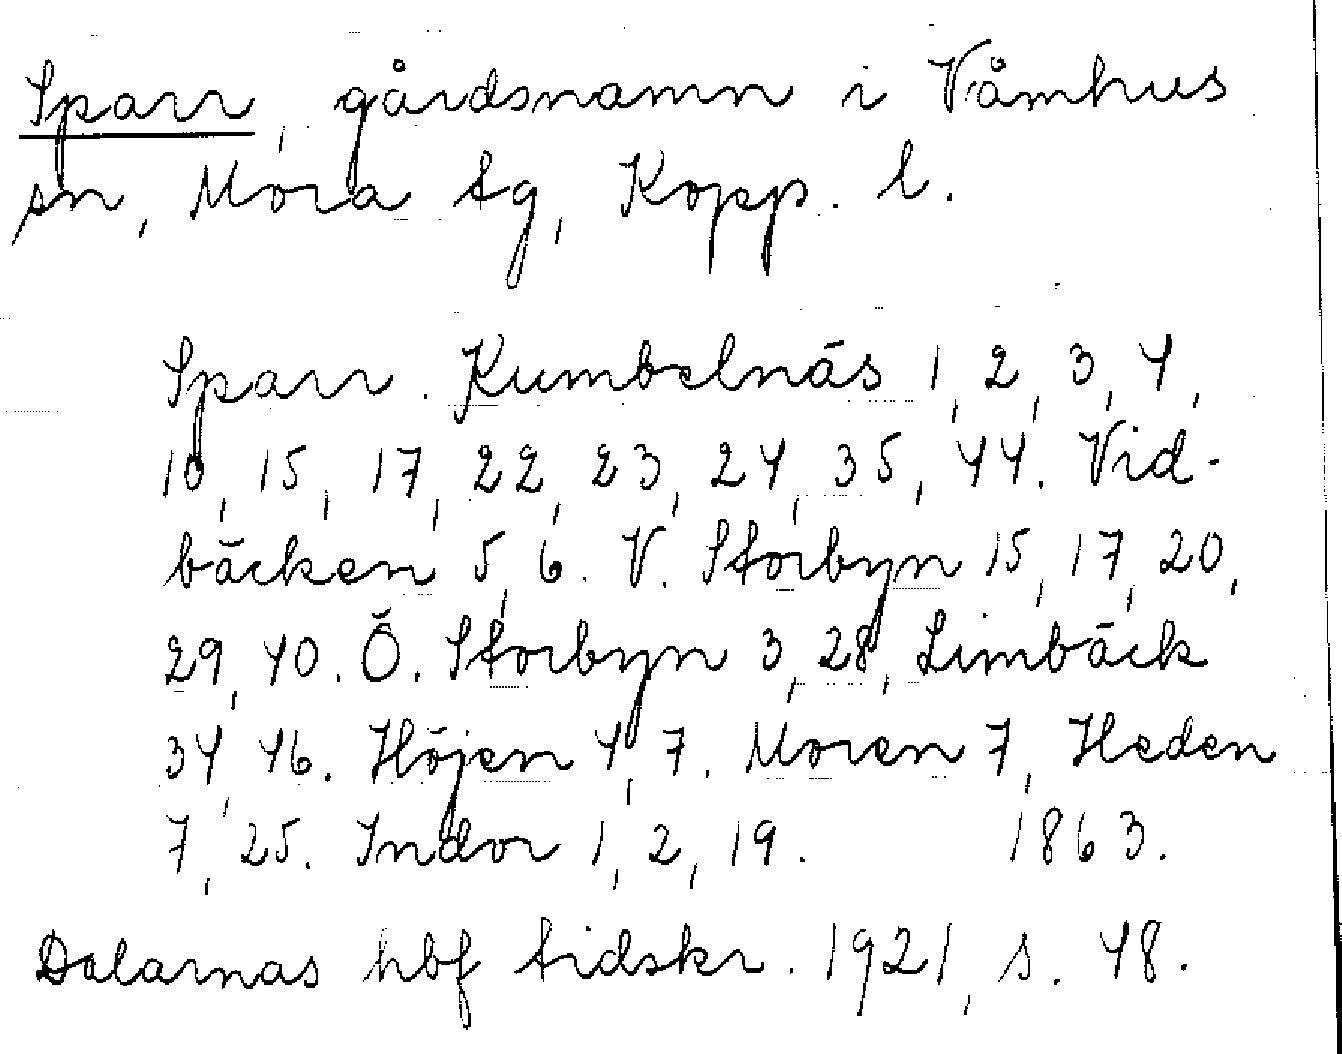 Sparr, gårdsnamn i Våmhus
sn, Mora tg, Kopp. l.
Sparr. Kumbelnäs 1, 2, 3, 4,
10, 15, 17, 22, 23, 24, 35, 44. Vid-
bäcken 5, 6. V. Storbyn 15, 17, 20,
29, 40. Ö. Storbyn 3, 28, Limbäck
34, 46. Höjen 4, 7. Moren 7, Heden
7, 25. Indor 1, 2, 19. 1863.
Dalarnas hbf tidskr. 1921, s. 48.